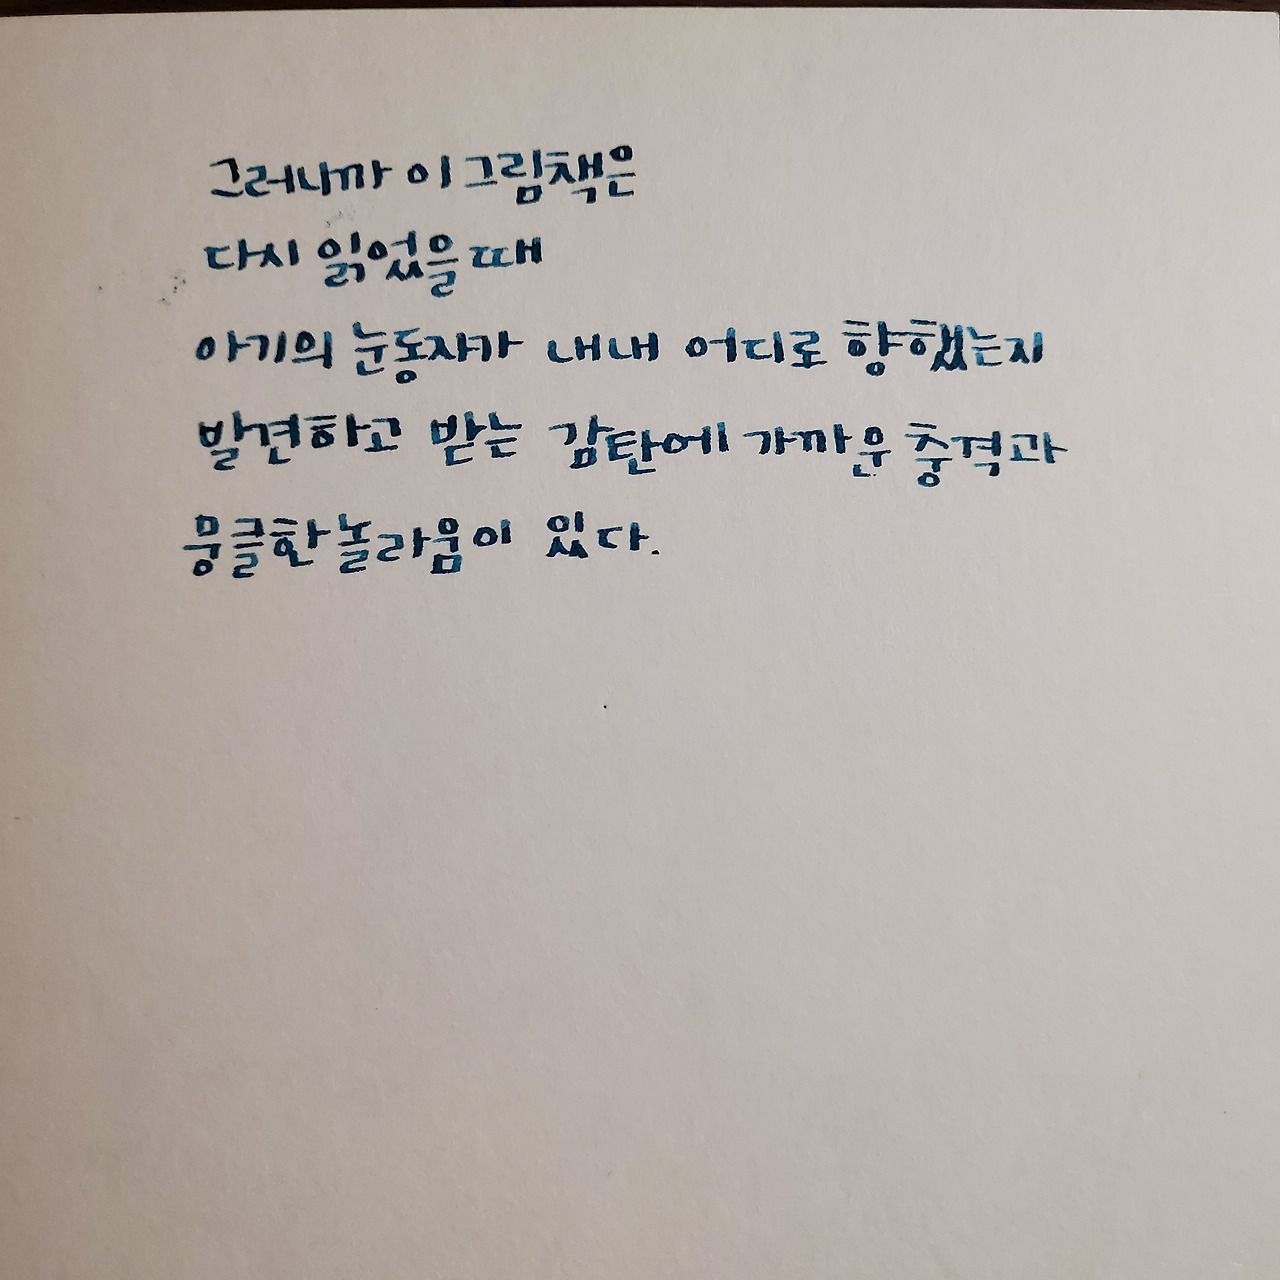 그러니까 이 그림책은
다시 읽었을 때
아기의 눈동자가 내내 어디로 향했는지
발견하고 받는 감탄에 가까운 충격과
뭉클한 놀라움이 있다.